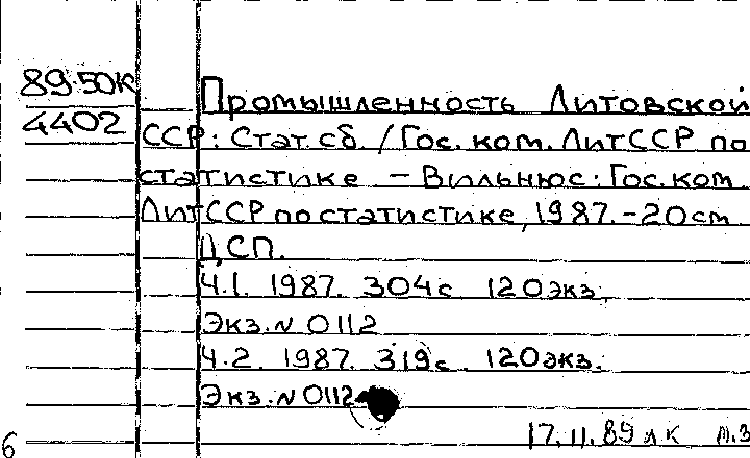 89-50К
4402
Промышленность Литовской
ССР: Стат. сб. /Гос. ком. ЛитССР по
статистике — Вильнюс: Гос. ком.
ЛитССР по статистике, 1987.-20см
ДСП.
Ч.1. 1987. 304с 120экз.
Экз. N 0112
Ч.2. 1987. 319с. 120экз.
Экз. N 0112
17.11.89 лк
6